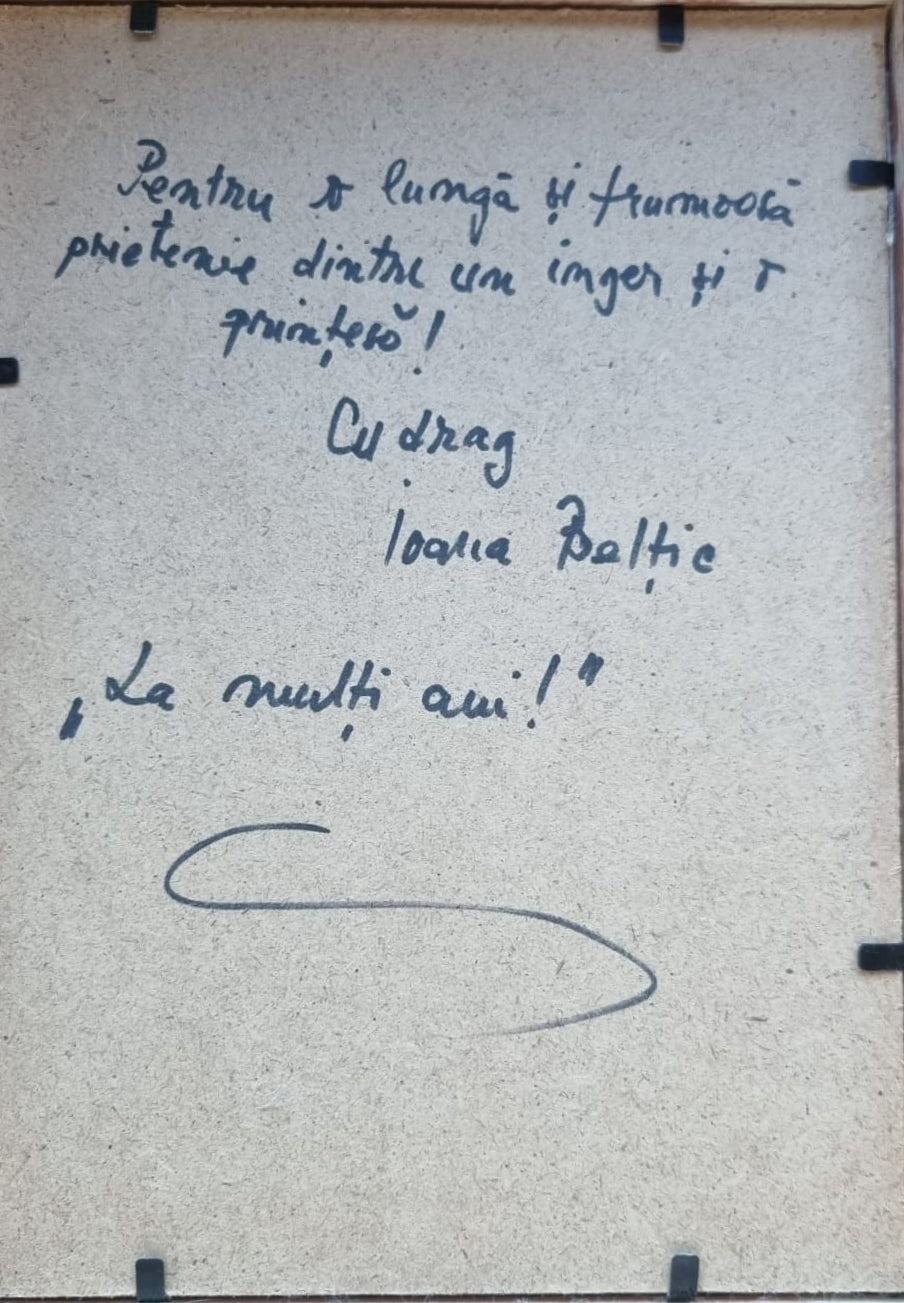 Pentru o lungă și frumoasă
prietenie dintre un inger și o
prințesă!
Cu drag
Ioana Belțic
„La mulți ani!"